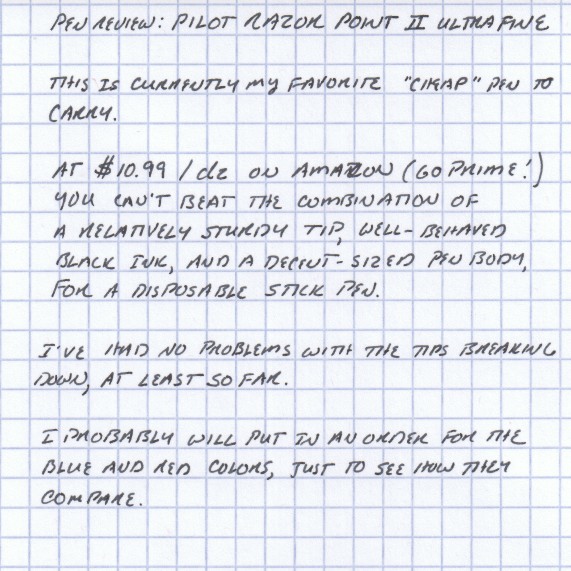 PEN REVIEW: PILOT RAZOR POINT II ULTRA FINE
THIS IS CURRENTLY MY FAVORITE "CHEAP" PEN TO
CARRY.
AT $10.99 / dz ON AMAZON (GO PRIME!)
YOU CAN'T BEAT THE COMBINATION OF
A RELATIVELY STURDY TIP, WELL-BEHAVED
BLACK INK, AND A DECENT-SIZED PEN BODY,
FOR A DISPOSABLE STICK PEN.
I'VE HAD NO PROBLEMS WITH THE TIPS BREAKING
DOWN, AT LEAST SO FAR.
I PROBABLY WILL PUT IN AN ORDER FOR THE
BLUE AND RED COLORS, JUST TO SEE HOW THEY
COMPARE.